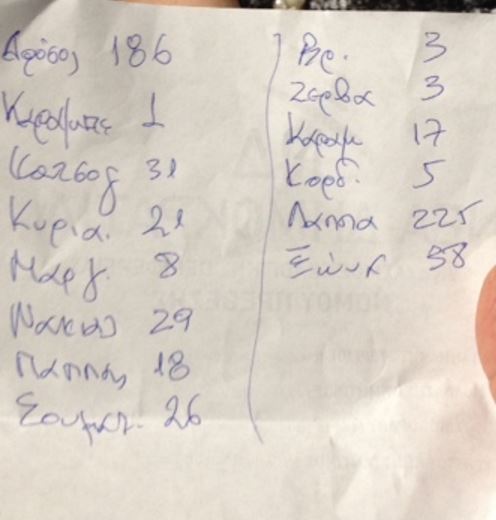 Δρόσος 186
Καραμπε 1
Κατσογ 31
Κυρια. 21
Μαργ. 8
Νάκιας 29
Παππάς 18
Σουμελ. 26
Βρ. 3
Ζέρβα 3
Καραμ 17
Κορδ. 5
Λάππα 225
58